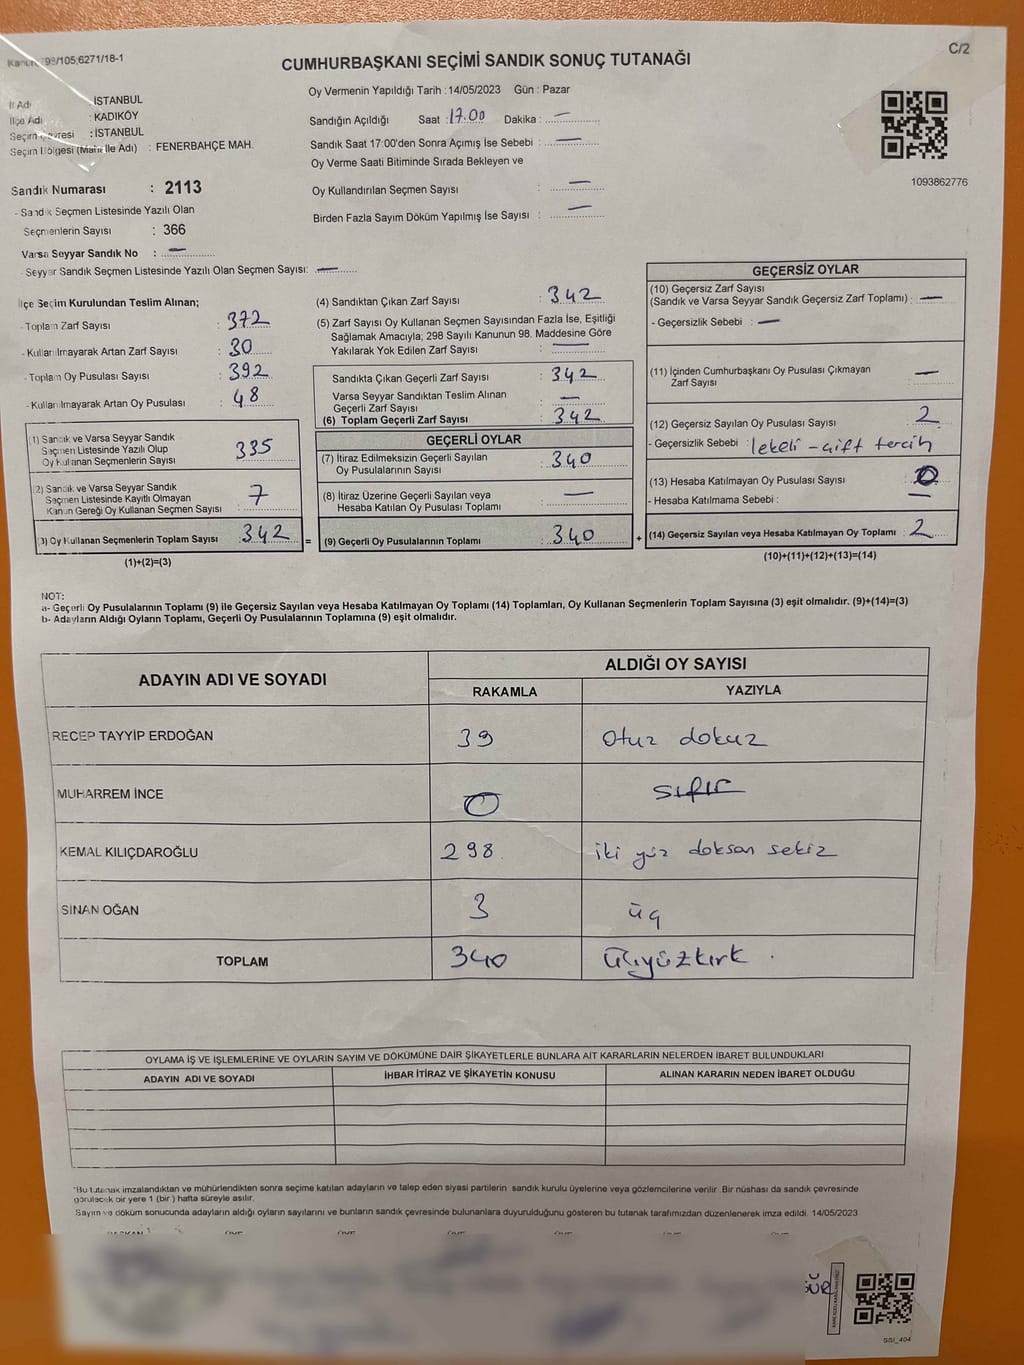 Kanun 298/105,6271/18-1
C/2
CUMHURBAŞKANI SEÇİMİ SANDIK SONUÇ TUTANAĞI
İl Adı : İSTANBUL
İlçe Adı : KADIKÖY
Seçim Çevresi : İSTANBUL
Seçim Bölgesi (Mah. İle Adı) : FENERBAHÇE MAH.
Sandık Numarası : 2113
- Sandık Seçmen Listesinde Yazılı Olan
Seçmenlerin Sayısı : 366
Varsa Seyyar Sandık No : —
- Seyyar Sandık Seçmen Listesinde Yazılı Olan Seçmen Sayısı: —
Oy Vermenin Yapıldığı Tarih : 14/05/2023 Gün : Pazar
Sandığın Açıldığı Saat : 17.00 Dakika : —
Sandık Saat 17:00'den Sonra Açımış İse Sebebi : —
Oy Verme Saati Bitiminde Sırada Bekleyen ve
Oy Kullandırılan Seçmen Sayısı : —
Birden Fazla Sayım Döküm Yapılmış İse Sayısı : —
1093862776
İlçe Seçim Kurulundan Teslim Alınan;
- Toplam Zarf Sayısı : 372
- Kullanılmayarak Artan Zarf Sayısı : 30
- Toplam Oy Pusulası Sayısı : 392
- Kullanılmayarak Artan Oy Pusulası : 48
(1) Sandık ve Varsa Seyyar Sandık
Seçmen Listesinde Yazılı Olup
Oy Kullanan Seçmenlerin Sayısı 335
(2) Sandık ve Varsa Seyyar Sandık
Seçmen Listesinde Kayıtlı Olmayan
Kanun Gereği Oy Kullanan Seçmen Sayısı : 7
(3) Oy Kullanan Seçmenlerin Toplam Sayısı : 342 =
(1)+(2)=(3)
(4) Sandıktan Çıkan Zarf Sayısı : 342
(5) Zarf Sayısı Oy Kullanan Seçmen Sayısından Fazla İse, Eşitliği
Sağlamak Amacıyla; 298 Sayılı Kanunun 98. Maddesine Göre
Yakılarak Yok Edilen Zarf Sayısı : —
Sandıkta Çıkan Geçerli Zarf Sayısı : 342
Varsa Seyyar Sandıktan Teslim Alınan
Geçerli Zarf Sayısı : —
(6) Toplam Geçerli Zarf Sayısı : 342
GEÇERLİ OYLAR
(7) İtiraz Edilmeksizin Geçerli Sayılan
Oy Pusulalarının Sayısı : 340
(8) İtiraz Üzerine Geçerli Sayılan veya
Hesaba Katılan Oy Pusulası Toplamı : —
(9) Geçerli Oy Pusulalarının Toplamı : 340 +
GEÇERSİZ OYLAR
(10) Geçersiz Zarf Sayısı
(Sandık ve Varsa Seyyar Sandık Geçersiz Zarf Toplamı) : —
- Geçersizlik Sebebi : —
(11) İçinden Cumhurbaşkanı Oy Pusulası Çıkmayan
Zarf Sayısı : —
(12) Geçersiz Sayılan Oy Pusulası Sayısı : 2
- Geçersizlik Sebebi : lekeli - çift tercih
(13) Hesaba Katılmayan Oy Pusulası Sayısı : 0
- Hesaba Katılmama Sebebi : —
(14) Geçersiz Sayılan veya Hesaba Katılmayan Oy Toplamı : 2
(10)+(11)+(12)+(13)=(14)
NOT:
a- Geçerli Oy Pusulalarının Toplamı (9) ile Geçersiz Sayılan veya Hesaba Katılmayan Oy Toplamı (14) Toplamları, Oy Kullanan Seçmenlerin Toplam Sayısına (3) eşit olmalıdır. (9)+(14)=(3)
b- Adayların Aldığı Oyların Toplamı, Geçerli Oy Pusulalarının Toplamına (9) eşit olmalıdır.
ADAYIN ADI VE SOYADI
ALDIĞI OY SAYISI
RAKAMLA YAZIYLA
RECEP TAYYİP ERDOĞAN 39 otuz dokuz
MUHARREM İNCE 0 sıfır
KEMAL KILIÇDAROĞLU 298 iki yüz doksan sekiz
SİNAN OĞAN 3 üç
TOPLAM 340 üçyüzkırk.
OYLAMA İŞ VE İŞLEMLERİNE VE OYLARIN SAYIM VE DÖKÜMÜNE DAİR ŞİKAYETLERLE BUNLARA AİT KARARLARIN NELERDEN İBARET BULUNDUKLARI
ADAYIN ADI VE SOYADI İHBAR İTİRAZ VE ŞİKAYETİN KONUSU ALINAN KARARIN NEDEN İBARET OLDUĞU
*Bu tutanak imzalandıktan ve mühürlendikten sonra seçime katılan adayların ve talep eden siyasi partilerin sandık kurulu üyelerine veya gözlemcilerine verilir. Bir nüshası da sandık çevresinde
görülecek bir yere 1 (bir) hafta süreyle asılır.
Sayım ve döküm sonucunda adayların aldığı oyların sayılarını ve bunların sandık çevresinde bulunanlara duyurulduğunu gösteren bu tutanak tarafımızdan düzenlenerek imza edildi. 14/05/2023